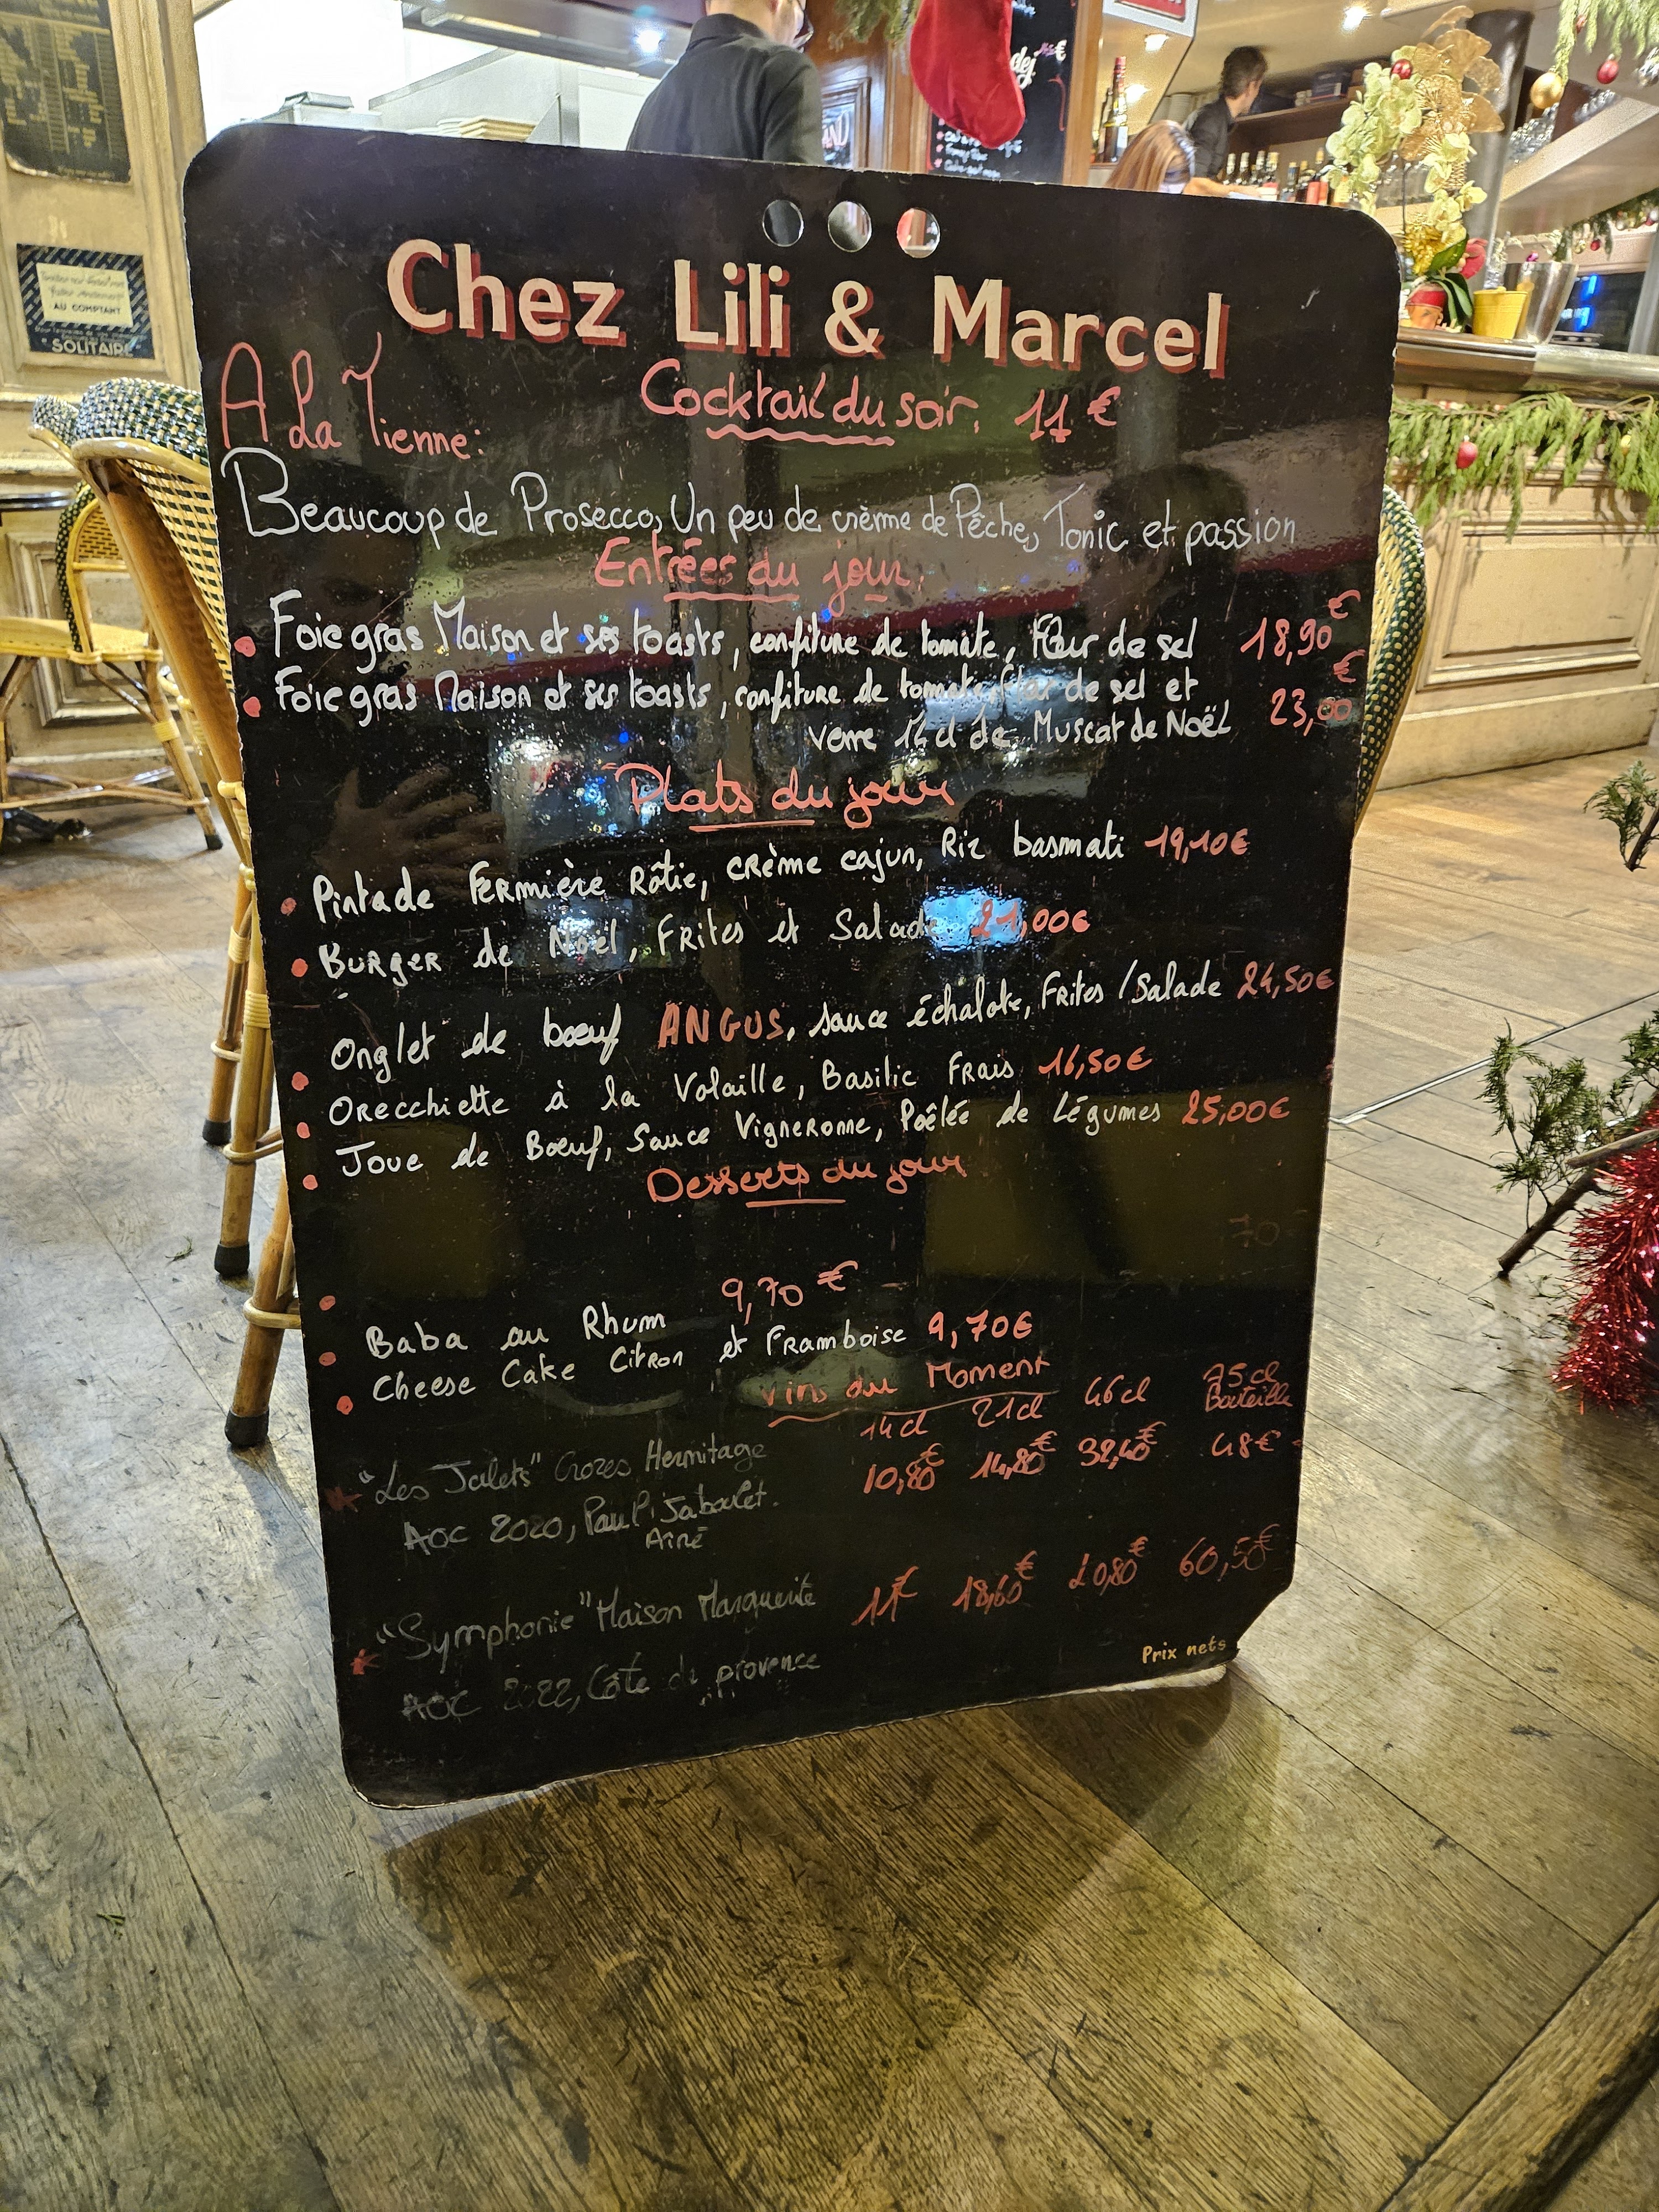 Chez Lili & Marcel
Cocktail du soir. 11 €
A La Tienne:
Beaucoup de Prosecco, Un peu de crème de Pêche, Tonic et passion
Entrées du jour.
Foie gras Maison et ses toasts, confiture de tomate, fleur de sel 18,90 €
Foie gras Maison et ses toasts, confiture de tomate, fleur de sel et
verre 14 cl de Muscat de Noël 23,00 €
Plats du jour
Pintade Fermière Rôtie, crème cajun, Riz basmati 19,10€
Burger de Noël, Frites et Salade 21,00€
Onglet de bœuf ANGUS, sauce échalote, Frites /Salade 24,50€
Orecchiette à la Volaille, Basilic Frais 16,50€
Joue de Bœuf, Sauce Vigneronne, Poêlée de Légumes 25,00€
Desserts du jour
Baba au Rhum 9,70 €
Cheese Cake Citron et Framboise 9,70€
Vins du Moment
14cl 21cl 46cl 75cl
Bouteille
"Les Jalets" Crozes Hermitage 10,80€ 14,80€ 32,40€ 48€
AOC 2020, Paul Jaboulet.
Aîné
"Symphonie" Maison Marguerite 11€ 18,60€ 40,80€ 60,50€
AOC 2022, Côte de provence
Prix nets
AU COMPTANT
SOLITAIRE